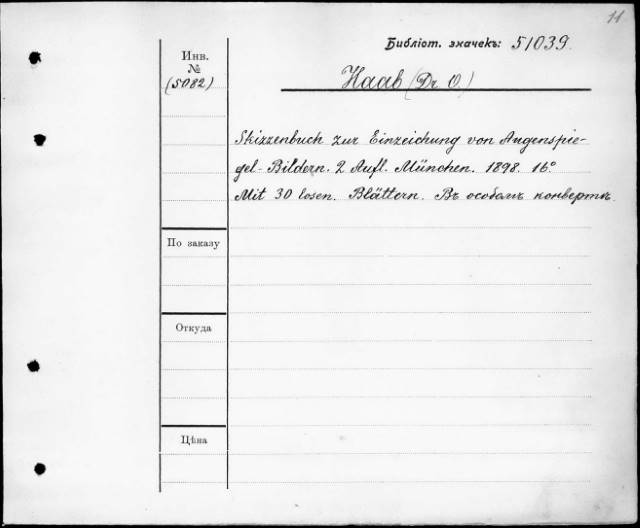 11
Библіот. значекъ: 51039.
Инв.
№
(5082)
Haab (Dr. O.)
Skizzenbuch zur Einzeichung von Augenspie-
gel-Bildern. 2 Aufl. München. 1898. 16°
Mit 30 losen. Blättern. Въ особомъ конвертѣ.
По заказу
Откуда
Цѣна